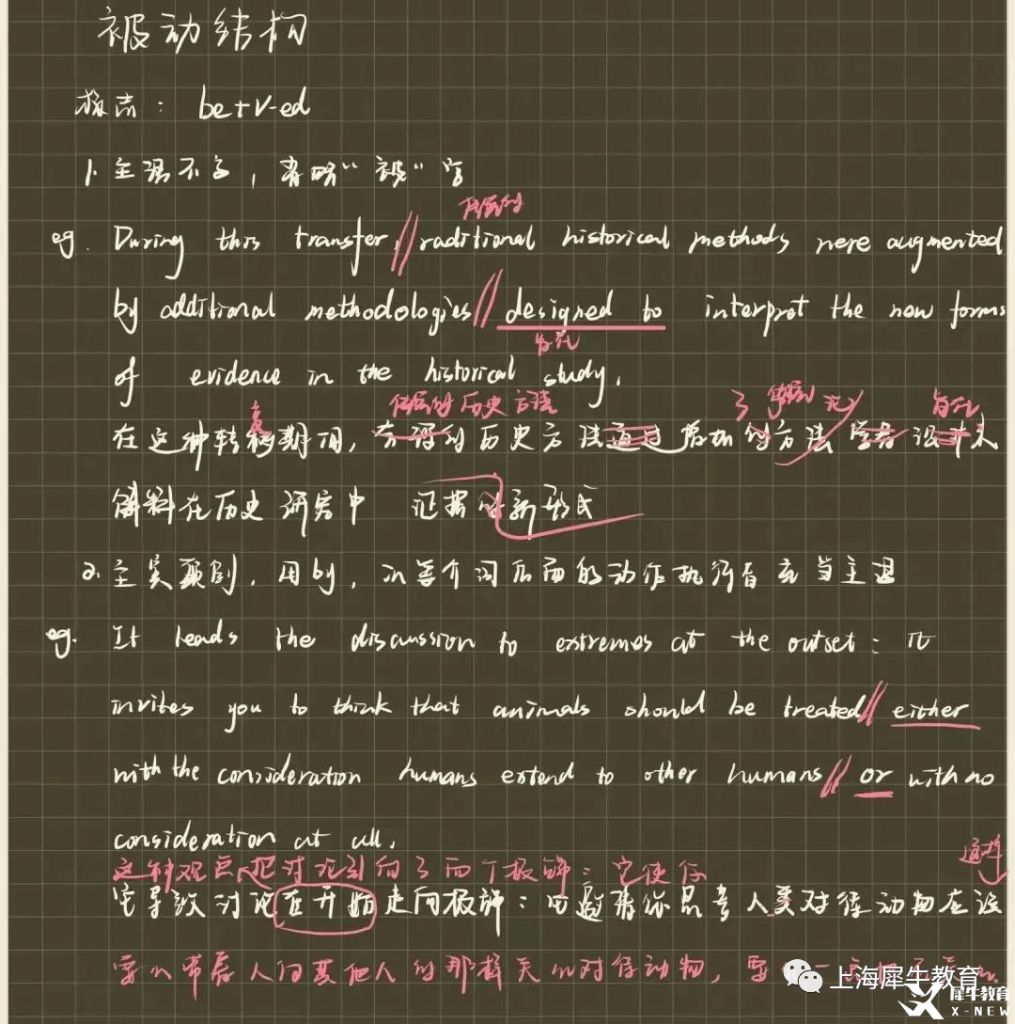 被动结构
标志: be+V-ed
1. 主语不 , 省略“被”字
传统的
eg. During this transfer, raditional historical methods were augmented
by additional methodologies designed to interpret the new forms
旨在
of evidence in the historical study.
变 传统的历史方法 了 旨在
在这种转 期间, 的历史方法通过 的方法
解释在历史研究中 证据的新形式
2. 主 , 用 by, 介词后面的动作执行者充当主语
eg. It leads the discussion to extremes at the outset: it
invites you to think that animals should be treated either
with the consideration humans extend to other humans or with no
consideration at all.
这种观点把讨论引向了两个极端: 它使你
它导致讨论在开始走向极端: 它邀请你思考人类对待动物应该
要么带着人们 其他人的那样关心对待动物, 要么一点
上海犀牛教育
犀牛教育
X-NEW